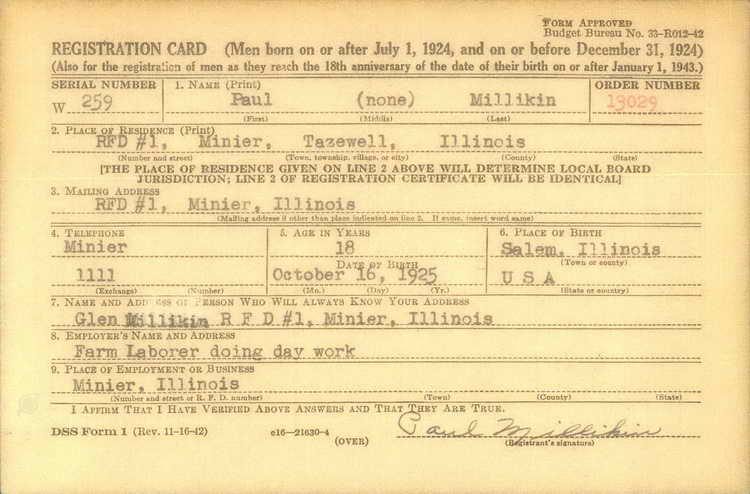 FORM APPROVED
Budget Bureau No. 33-R012-42
REGISTRATION CARD (Men born on or after July 1, 1924, and on or before December 31, 1924)
(Also for the registration of men as they reach the 18th anniversary of the date of their birth on or after January 1, 1943.)
SERIAL NUMBER 1. NAME (Print) ORDER NUMBER
W 259 Paul (none) Millikin 13029
(First) (Middle) (Last)
2. PLACE OF RESIDENCE (Print)
RFD #1, Minier, Tazewell, Illinois
(Number and street) (Town, township, village, or city) (County) (State)
[THE PLACE OF RESIDENCE GIVEN ON LINE 2 ABOVE WILL DETERMINE LOCAL BOARD
JURISDICTION; LINE 2 OF REGISTRATION CERTIFICATE WILL BE IDENTICAL]
3. MAILING ADDRESS
RFD #1, Minier, Illinois
(Mailing address if other than place indicated on line 2. If same, insert word same)
4. TELEPHONE 5. AGE IN YEARS 6. PLACE OF BIRTH
Minier 18 Salem, Illinois
DATE OF BIRTH (Town or county)
1111 October 16, 1925 U S A
(Exchange) (Number) (Mo.) (Day) (Yr.) (State or country)
7. NAME AND ADDRESS OF PERSON WHO WILL ALWAYS KNOW YOUR ADDRESS
Glen Millikin R F D #1, Minier, Illinois
8. EMPLOYER'S NAME AND ADDRESS
Farm Laborer doing day work
9. PLACE OF EMPLOYMENT OR BUSINESS
Minier, Illinois
(Number and street or R. F. D. number) (Town) (County) (State)
I AFFIRM THAT I HAVE VERIFIED ABOVE ANSWERS AND THAT THEY ARE TRUE.
DSS Form 1 (Rev. 11-16-42) c16—21630-4 Paul Millikin
(OVER) (Registrant's signature)